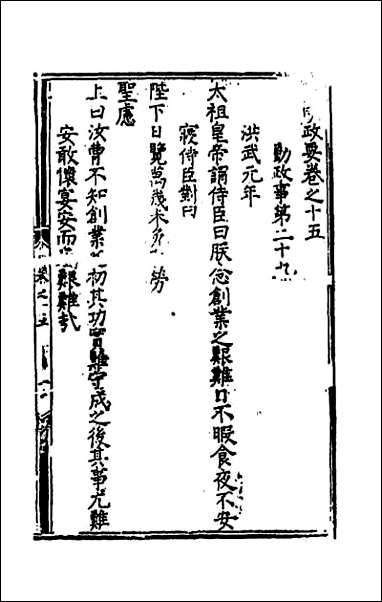 政要卷之十五
勤政事第二十九
洪武元年
太祖皇帝謂侍臣曰朕念創業之艱難日不暇食夜不安
寢侍臣對曰
陛下日覽萬幾未免勞
聖慮
上曰汝曹不知創業之初其功實難守成之後其事尤難
安敢懷宴安而忘艱難哉
卷之十五